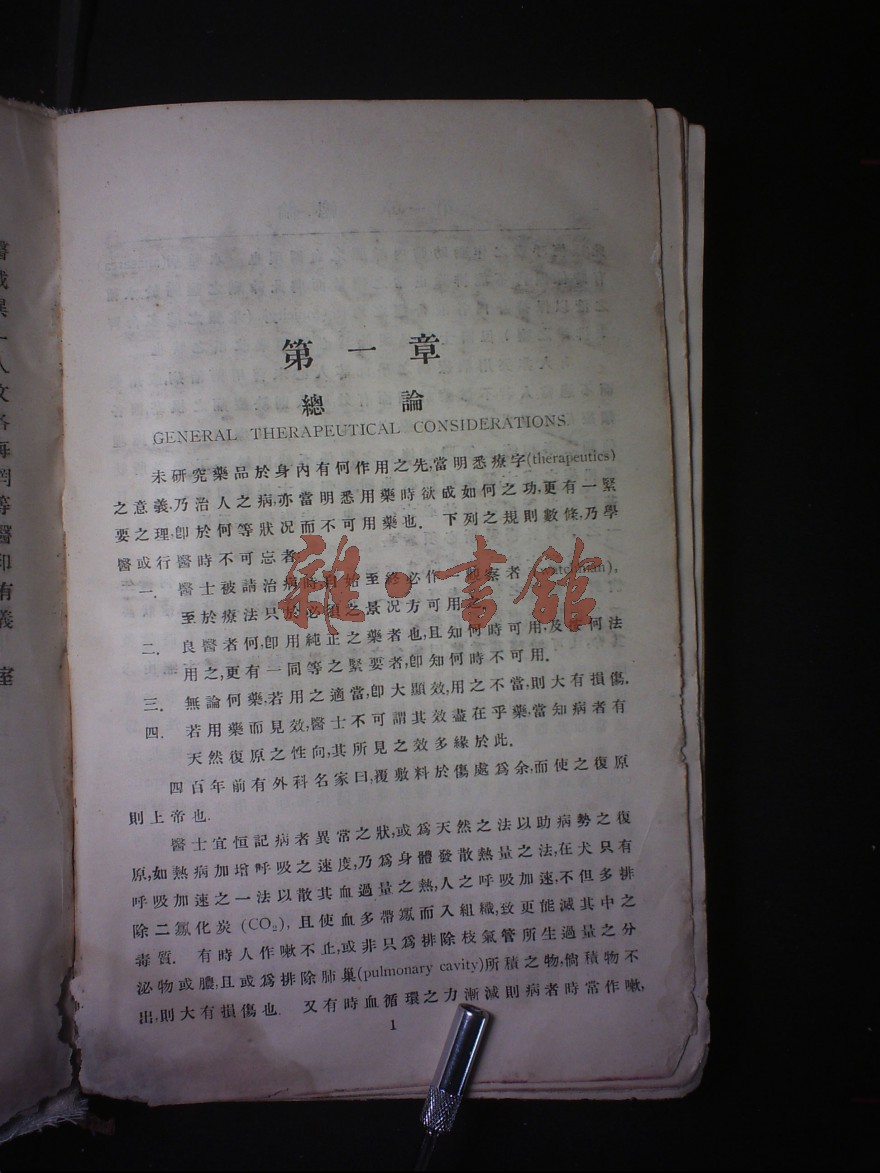 第一章
總論
GENERAL THERAPEUTICAL CONSIDERATIONS.
未研究藥品於身內有何作用之先,當明悉療字(therapeutics)
之意義,乃治人之病,亦當明悉用藥時欲成如何之功,更有一緊
要之理,卽於何等狀况而不可用藥也. 下列之規則數條,乃學
醫或行醫時不可忘者.
一. 醫士被請治病時,自始至終必作一觀察者 (watchman),
至於療法只於必須之景况方可用之.
二. 良醫者何,卽用純正之藥者也,且知何時可用,及任何法
用之,更有一同等之緊要者,卽知何時不可用.
三. 無論何藥,若用之適當,卽大顯效,用之不當,則大有損傷.
四. 若用藥而見效,醫士不可謂其效盡在乎藥,當知病者有
天然復原之性向,其所見之效多緣於此.
四百年前有外科名家曰,覆敷料於傷處爲余,而使之復原
則上帝也.
醫士宜恒記病者異常之狀,或爲天然之法以助病勢之復
原,如熱病加增呼吸之速度,乃爲身體發散熱量之法,在犬只有
呼吸加速之一法以散其血過量之熱,人之呼吸加速,不但多排
除二氱化炭 (CO₂), 且使血多帶氱而入組織,致更能滅其中之
毒質. 有時人作嗽不止,或非只爲排除枝氣管所生過量之分
泌物或膿,且或爲排除肺巢(pulmonary cavity)所積之物,倘積物不
出,則大有損傷也. 又有時血循環之力漸減則病者時常作嗽,
1
雜·書館